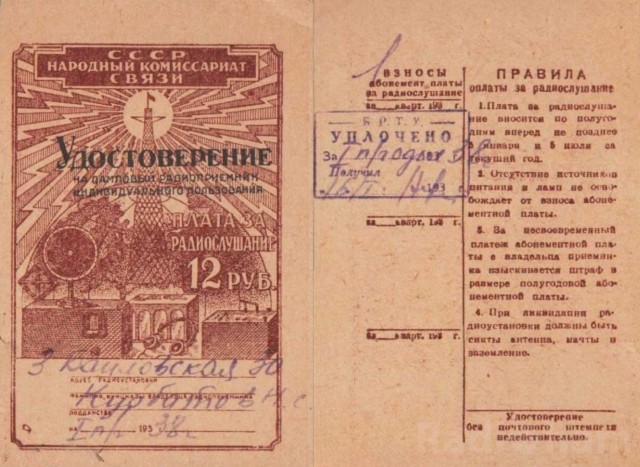 СССР
НАРОДНЫЙ КОМИССАРИАТ
СВЯЗИ
УДОСТОВЕРЕНИЕ
НА ЛАМПОВЫЙ РАДИОПРИЕМНИК
ИНДИВИДУАЛЬНОГО ПОЛЬЗОВАНИЯ
ПЛАТА ЗА
РАДИОСЛУШАНИЕ
12 РУБ.
30
АДРЕС РАДИОУСТАНОВКИ
ПОДДАНСТВО
на 193 38 г
ВЗНОСЫ
абонемент. платы
за радиослушание
за кварт. 193 г.
Б.Р.Т.У.
УПЛОЧЕНО
За
Получил
193 г.
за кварт. 193 г.
за кварт. 193 г.
ПРАВИЛА
оплаты за радиослушание
1. Плата за радиослуша-
ние вносится по полуго-
диям вперед не позднее
5 января и 5 июля за
текущий год.
2. Отсутствие источников
питания и ламп не осво-
бождает от взноса абоне-
ментной платы.
3. За несвоевременный
платеж абонементной пла-
ты с владельца приемни-
ка взыскивается штраф в
размере полугодовой або-
нементной платы.
4. При ликвидации ра-
диоустановки должны быть
сняты антенна, мачты и
заземление.
Удостоверение
без почтового штемпеля
недействительно.